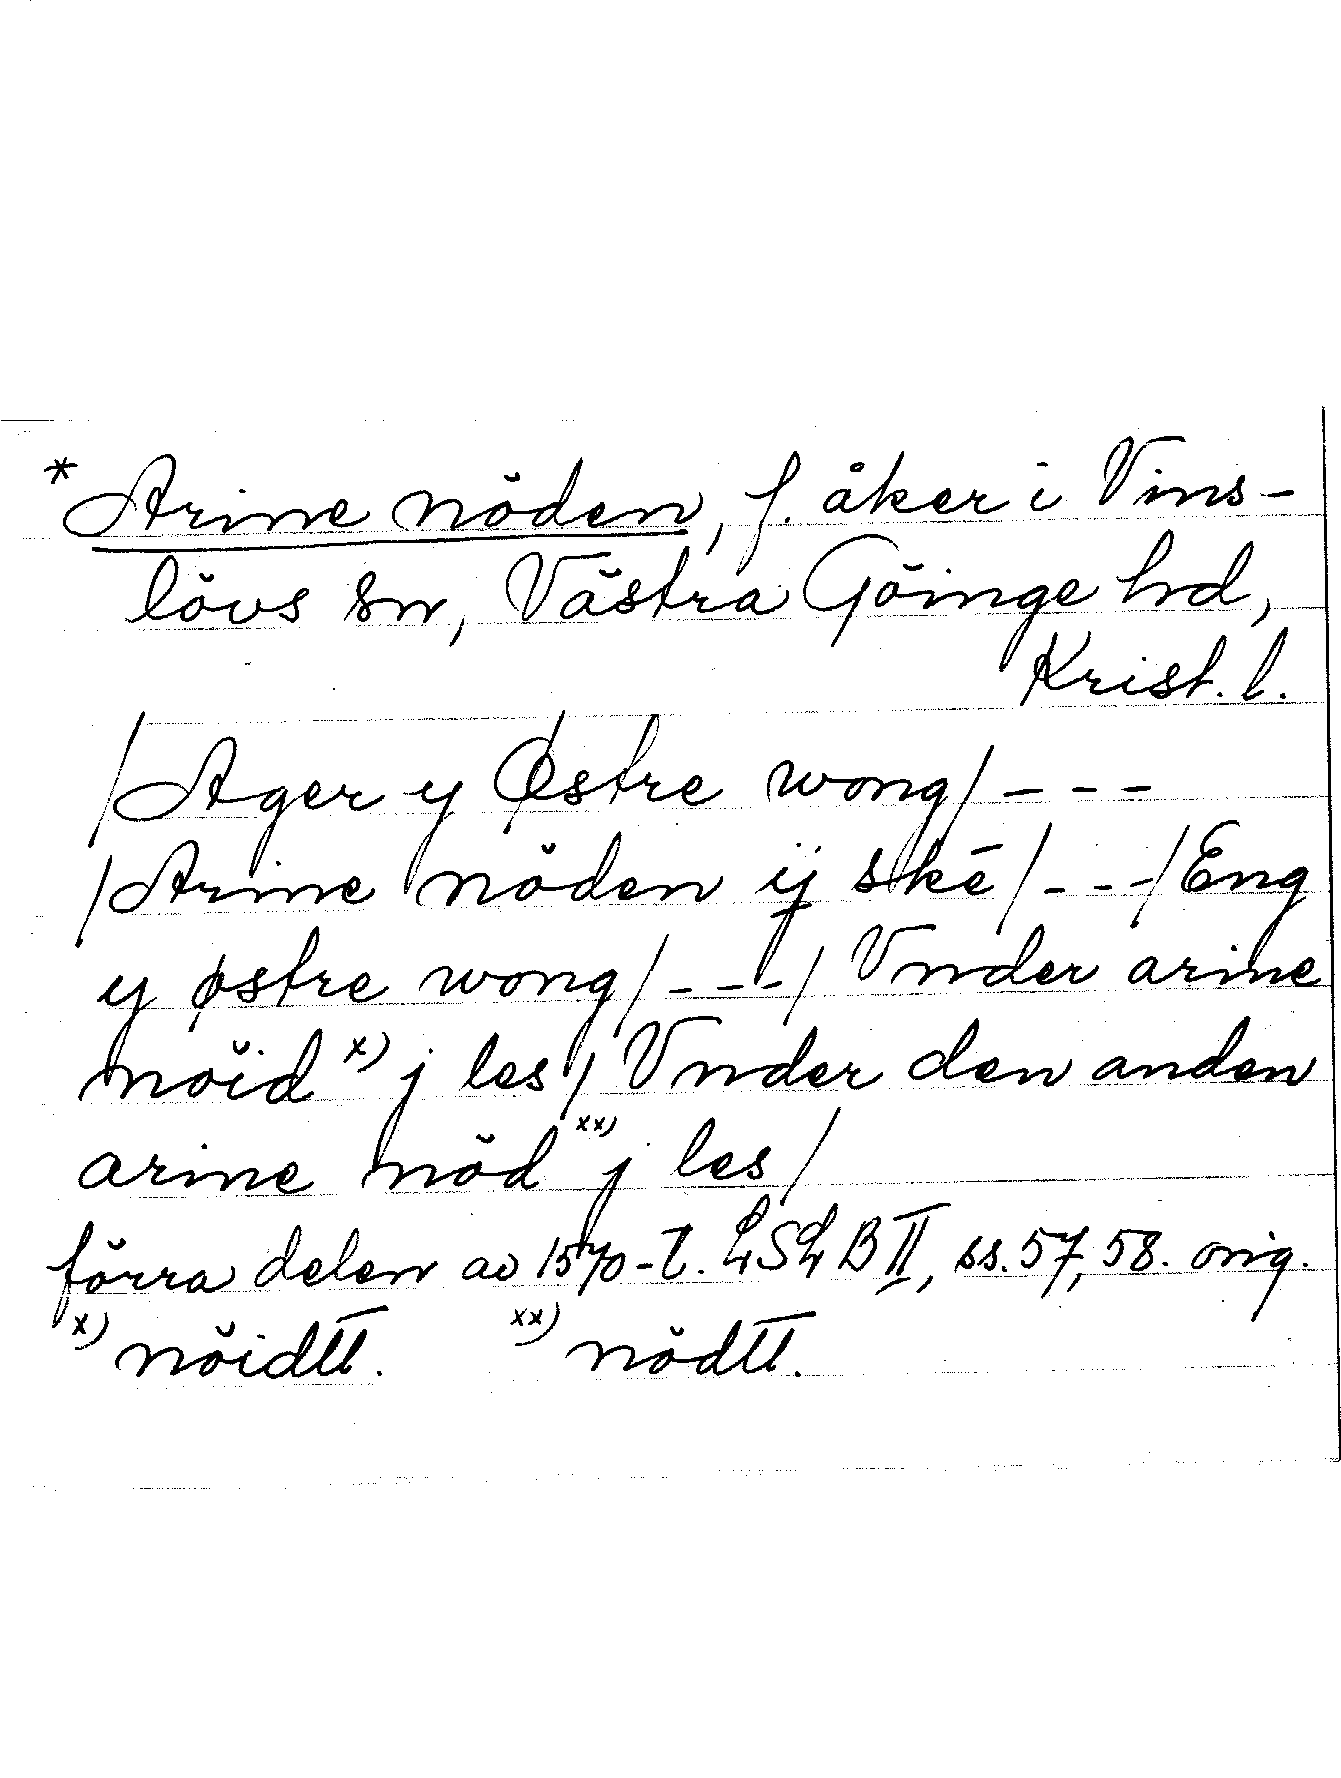 * Arine nöden, f. åker i Vins-
lövs sn, Västra Göinge hd,
Krist. l.
/Ager y Østre wong/ - - -
/Arine nöden ij skē/ - - - /Eng
y østre wong/ - - - / Vnder arine
nöid x) j les / Vnder den anden
arine nöd xx) j les /
förra delen av 1570-t. LSLB II, ss. 57, 58. orig.
x) nöidtt. xx) nödtt.